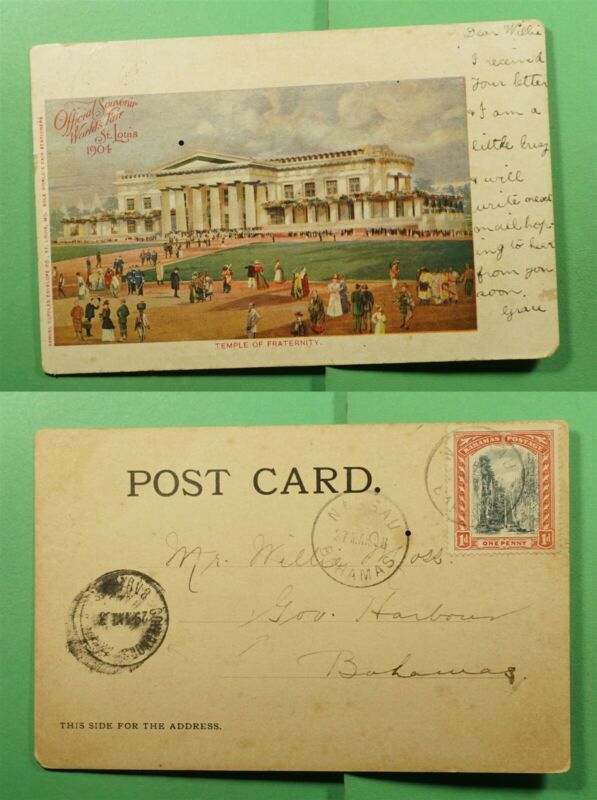 Dear Willie
I received
your letter
& I am a
little busy
& will
write next
mail hop-
ing to hear
from you
soon.
Grace
Official Souvenir
World's Fair
St. Louis
1904
SAMUEL CUPPLES ENVELOPE CO., ST. LOUIS, MO. SOLE WORLD'S FAIR STATIONERS
TEMPLE OF FRATERNITY.
BAHAMAS POSTAGE
1d ONE PENNY 1d
POST CARD.
NASSAU
BAHAMAS
Mr. Willie Ross.
Gov. Harbour
Bahamas
THIS SIDE FOR THE ADDRESS.